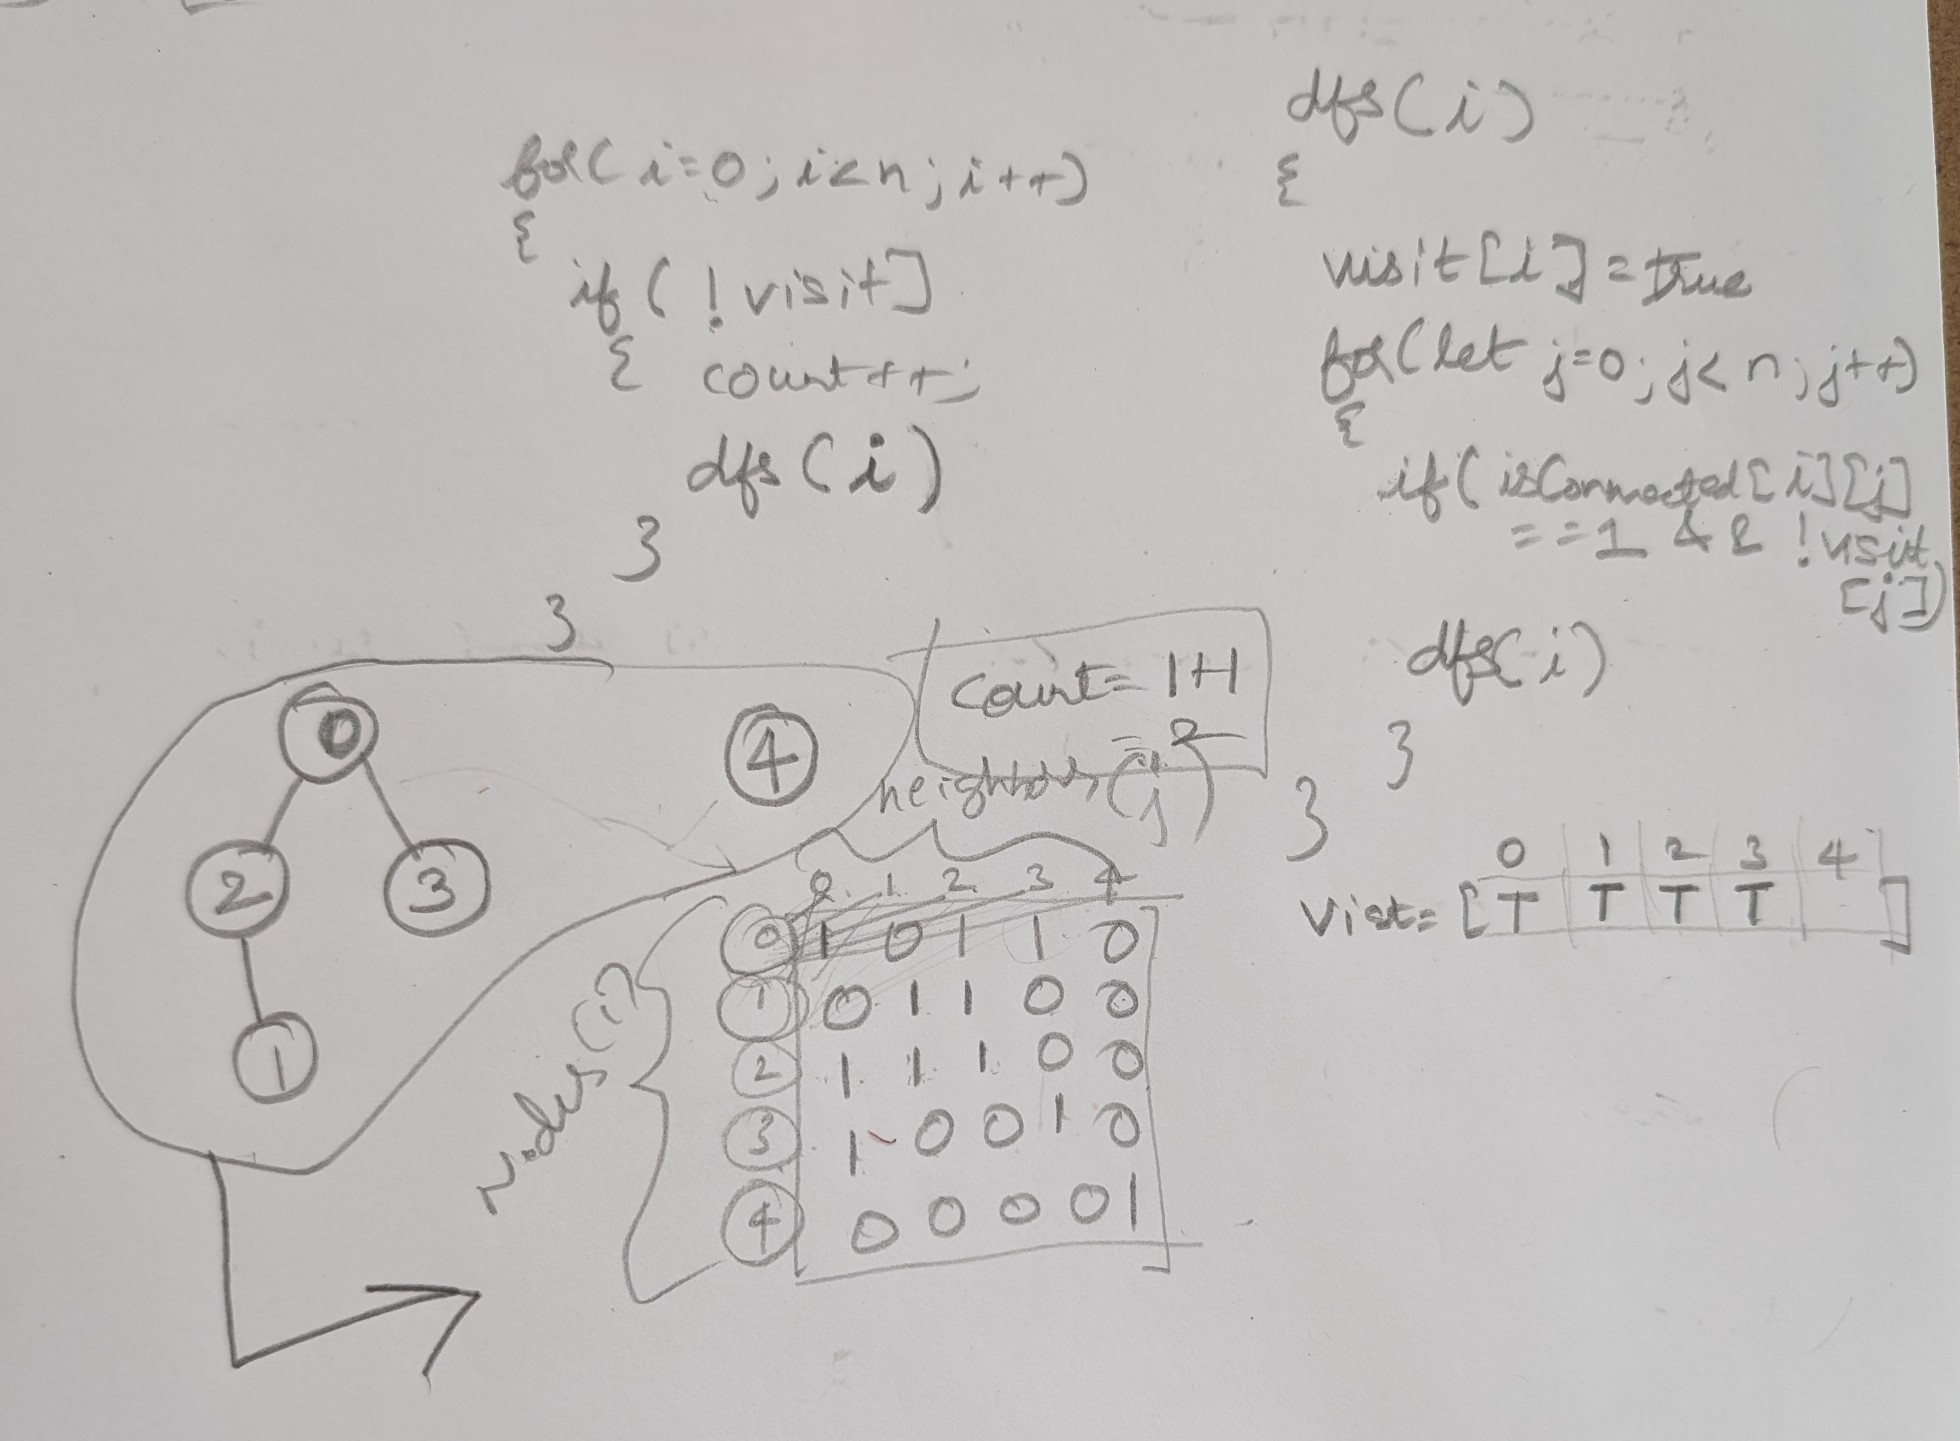 for(i=0;i<n;i++)
{
if(!visit]
{ count++;
dfs(i)
}
}
dfs(i)
{
visit[i]=true
for(let j=0;j<n;j++)
{
if(isConnected[i][j]
==1 && !visit
[j])
dfs(i)
}
}
count=1+1
=2
0
4
2
3
1
neighbours(j)
0 1 2 3 4
nodes(i)
0 1 0 1 1 0
1 0 1 1 0 0
2 1 1 1 0 0
3 1 0 0 1 0
4 0 0 0 0 1
0 1 2 3 4
Vist=[T T T T ]